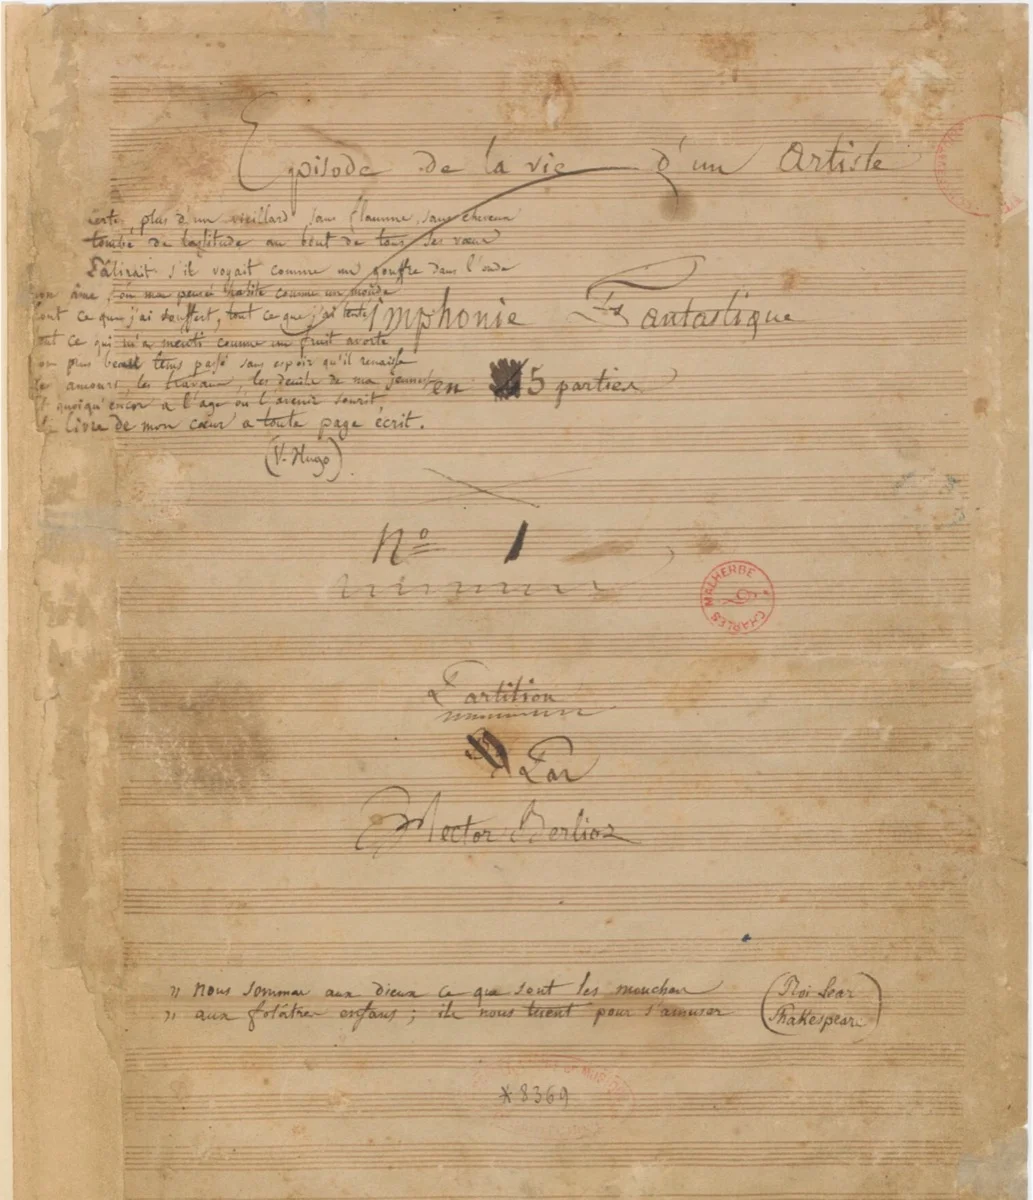 Episode de la vie d'un Artiste
Certes, plus d'un vieillard sans flamme, sans cheveux
tombé de lassitude au bout de tous ses vœux
Pâlirait s'il voyait comme un gouffre dans l'onde
on âme, où ma pensée habite comme un monde
tout ce que j'ai souffert, tout ce que j'ai tenté
Simphonie Fantastique
ut ce qui m'a menti comme un fruit avorté
on plus beau tems passé sans espoir qu'il renaisse
les amours, les travaux, les deuils de ma jeunesse
en 5 parties
t quoiqu'encor a l'age où l'avenir sourit
le livre de mon cœur a toute page écrit.
(V. Hugo)
No 1
CHARLES MALHERBE
Partition
Par
Hector Berlioz
» nous sommes aux dieux ce que sont les mouches
» aux folâtres enfans ; ils nous tuent pour s'amuser
(Roi Lear
Shakespeare)
*8369